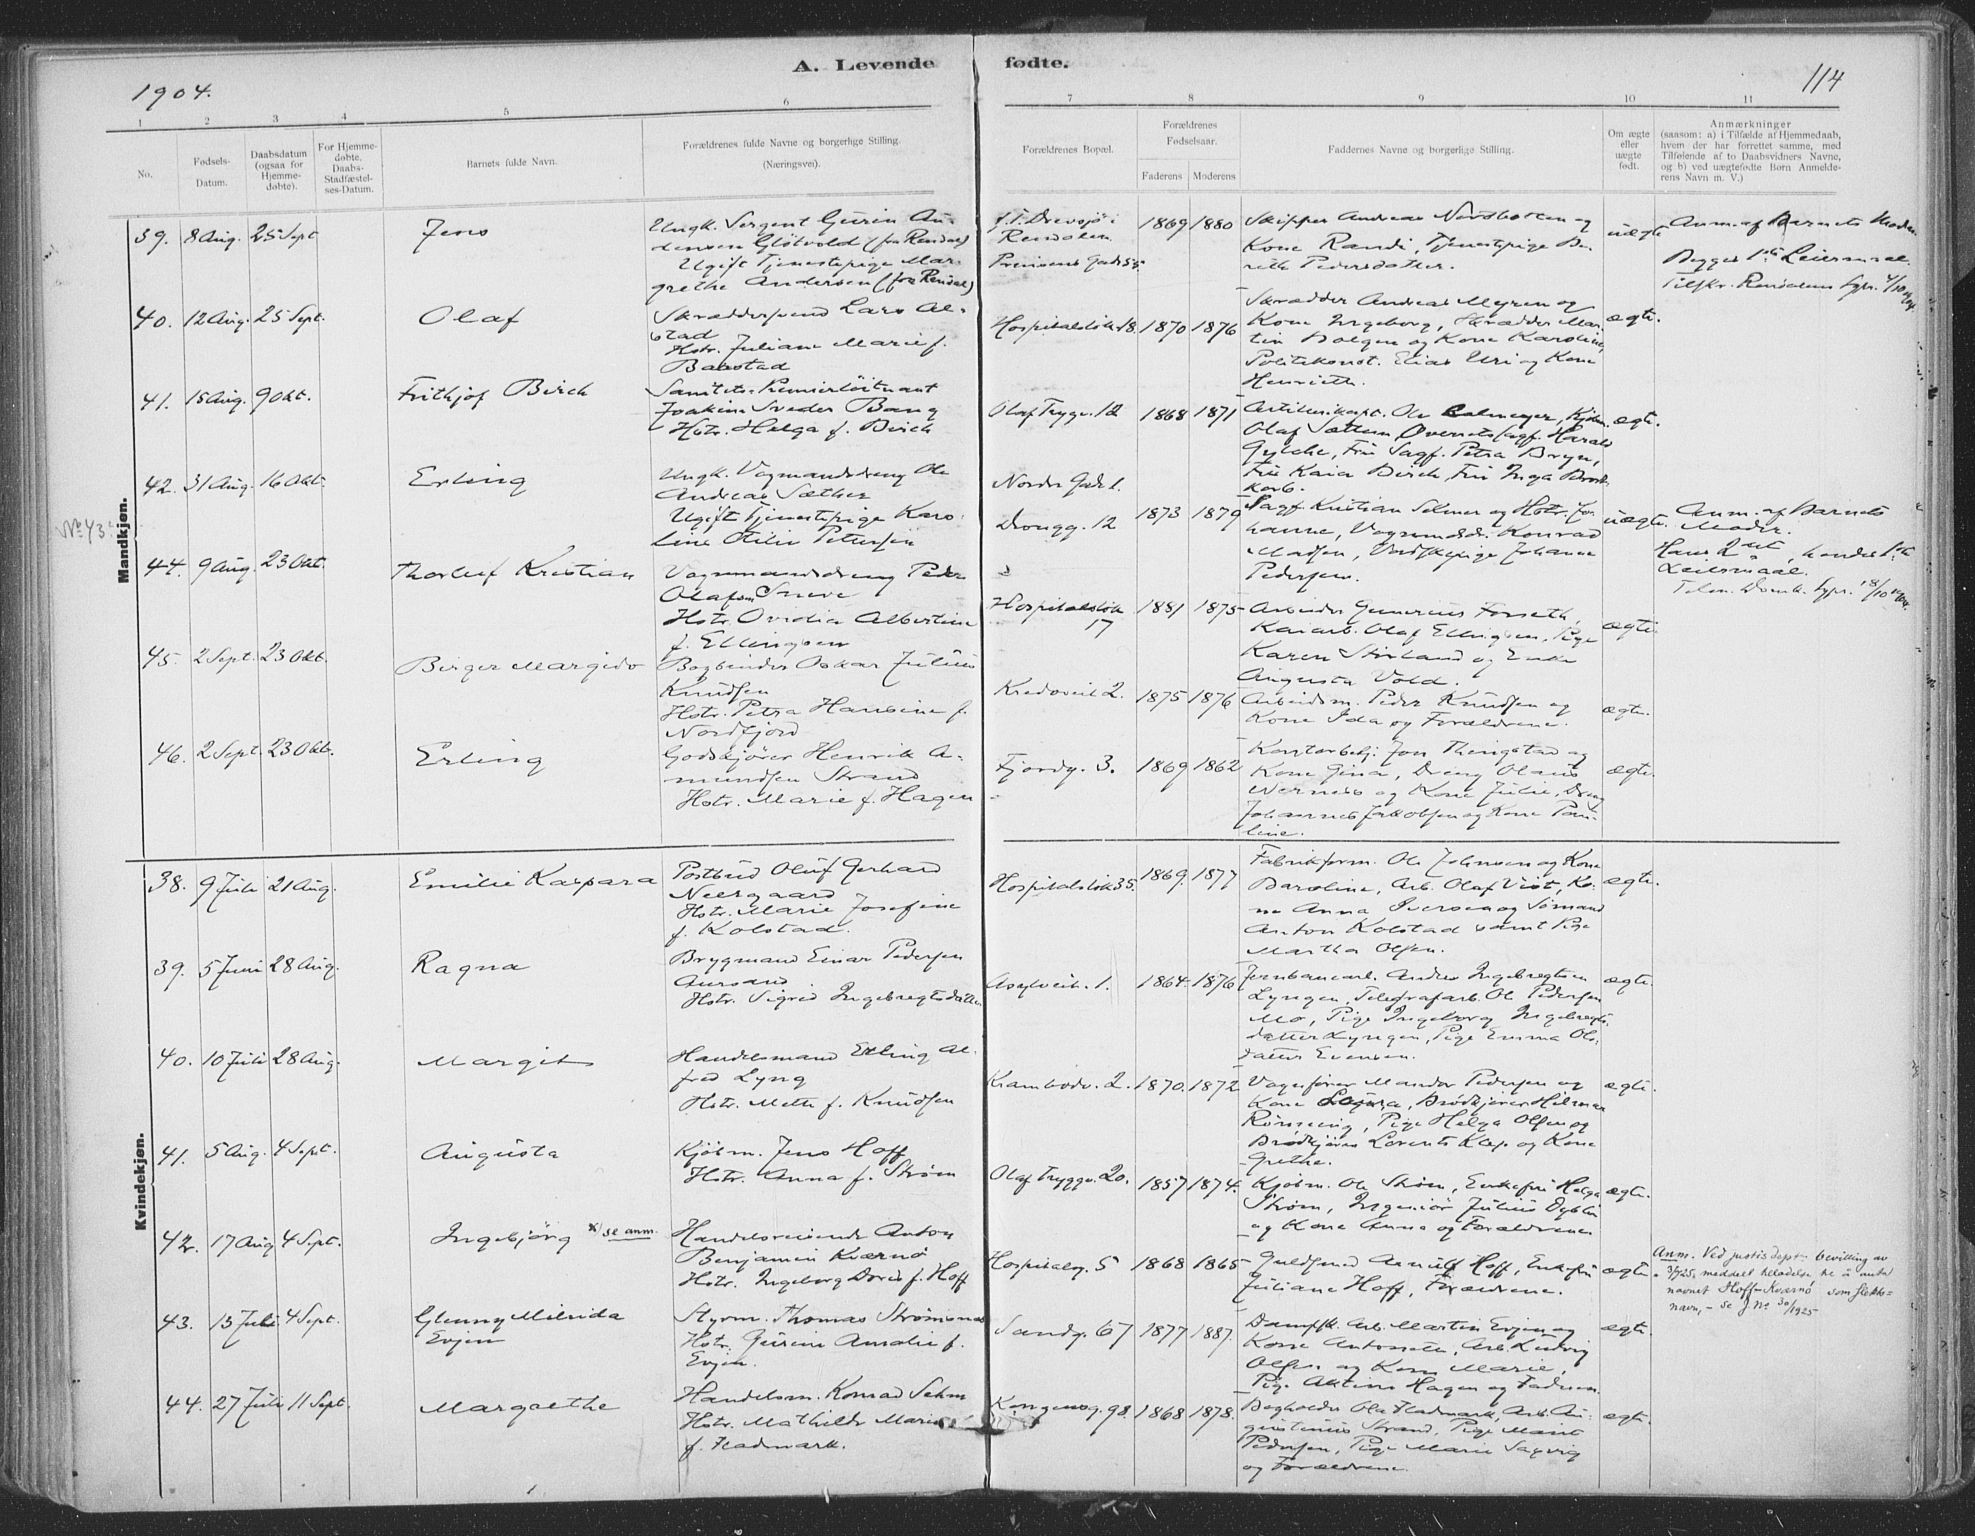 1904.
A. Levende fødte.
114
1 2 3 4 5 6 7 8 9 10 11
No.
Fødsels-Datum.
Daabsdatum (ogsaa for Hjemme-døbte).
For Hjemme-døbte, Daabs-Stadfæstel-ses-Datum.
Barnets fulde Navn.
Forældrenes fulde Navne og borgerlige Stilling.
(Næringsvei).
Forældrenes Bopæl.
Forældrenes Fødselsaar.
Faderens Moderens
Faddernes Navne og borgerlige Stilling.
Om ægte eller uægte født.
Anmærkninger
(saasom: a) i Tilfælde af Hjemmedaab,
hvem der har forrettet samme, med
Tilføiende af to Daabsvidners Navne,
og b) ved uægtefødte Børn Anmelde-
rens Navn m. V.)
Mandkjøn.
39. 8 Aug. 25 Sept Jens
Ungk. Sergent Gurin Au-
densen Gløtvold (fra Rendal)
Ugift Tjenestepige Mar-
grethe Andersen (fra Rendal)
Rendalen
Prinsens Gade 55
1869 1880
Skipper Andreas Nordbotten og
Kone Randi, Tjenestepige Be-
rith Pedersdatter.
uægte
Anm. af Barnets Moder.
Begges 1ste Leiermaal.
40. 12 Aug. 25 Sept. Olaf
Skræddersvend Lars Al-
stad
Hstr. Juliane Marie f.
Baustad
Hospitalsløk. 18. 1870 1876
Skrædder Andreas Myren og
Kone Ingeborg, Skrædder Mar-
tin Dolgen og Kone Karoline,
Politikonst. Elias Uri og Kone
Henriette.
ægte.
41. 15 Aug. 9 Okt. Frithjof Birch
Sanitets-Premierløitnant
Joakim Sveder Bang
Hstr. Helga f. Birch
Olaf Trygv. 12 1868 1871
Artillerikapt. Ole
Olaf Sættem Sagf. Harald
Gylche, Fru Sagf. Petra Bryn,
Fru Kaia Birch, Fru Inga
ægte.
42. 31 Aug. 16 Okt. Erling
Ungk. Vognmandsdreng Ole
Andreas Sæther
Ugift Tjenestepige Karo-
line Otilie Pettersen
Nordre Gade 1.
Drongg. 12 1873 1879
Sagf. Kristian Selmer og Hstr. Jo-
hanne, Vognmdsk. Konrad
Madsen, Johanna
Pedersen.
uægte.
Anm. af Barnets
Moder.
Hans 2det, hendes 1ste
Leiermaal.
No 43
44. 9 Aug. 23 Okt. Thorleif Kristian
Vognmandsdreng Peder
Olafsen Sneve
Hstr. Ovidia Albertine
f. Ellingsen
Hospitalsløk
17
1881 1875
Arbeider Gunerius Forseth,
Kaiarb. Olaf Ellingsen, Pige
Karen Stirland og Enke
Augusta Vold.
ægte
45. 2 Sept. 23 Okt. Birger Margido
Bogbinder Oskar Julius
Knudsen
Hstr. Petra Hansine f.
Nordfjord
Kredsveit 2. 1875 1876
Arbeidsm. Peder Knudsen og
Kone Ida og Forældrene.
ægte.
46. 2 Sept. 23 Okt. Erling
Godskjører Henrik A-
mundsen Strand
Hstr. Marie f. Hagen
Fjordg. 3. 1869 1862
Kontorbetj. Jon Thingstad og
Kone Gina, Dreng Olaus
Werness og Kone Julie, Dreng
Johannes Jakobsen og Kone Pau-
line.
ægte.
Kvindekjøn.
38. 9 Juli 21 Aug. Emilie Kaspara
Postbud Oluf Gerhard
Neergaard
Hstr. Marie Josefine
f. Kolstad.
Hospitalsløk 35. 1869. 1877
Fabrikform. Ole Johnsen og Kone
Baroline, Arb. Olaf Vist, Ko-
ne Anna Iversen og Sømand
Anton Kolstad samt Pige
Martha Olsen.
ægte.
39. 5 Juni 28 Aug. Ragna
Brygmand Einar Pedersen
Aursand.
Hstr. Sigrid Ingebregtsdatter
Asylveit. 1. 1864 1876
Jernbanearb. Anders Ingebregtsen
Lyngen, Telegrafarb. Ole Pedersen
Mo, Pige Ingeborg Ingebregts-
datter Lyngen, Pige Emma Ols-
datter Evensen.
ægte.
40. 10 Juli 28 Aug. Margit
Handelsmand Erling Al-
fred Lyng
Hstr. Mette f. Knudsen
Krambodv. 2. 1870. 1872
Vognfører Mandor Pedersen og
Kone Laura, Brødkjører Hilmar
Rønning, Pige Helga Olsen og
Brødkjører Lorents Klep og Kone
Grethe.
ægte.
41. 5 Aug. 4 Sept. Augusta
Kjøbm. Jens Hoff
Hstr. Anna f. Strøm
Olaf Tryggv. 20. 1857 1874.
Kjøbm. Ole Strøm, Enkefru Helga
Strøm, Ingeniør Julius Dyblie
og Kone Anna og Forældrene
ægte.
42. 17 Aug 4 Sept. Ingebjørg x) se anm.
Handelsreisende Anton
Benjamin Kværnø
Hstr. Ingeborg Dores f. Hoff
Hospitalsg. 5 1868 1865
Guldsmed Arnulf Hoff, Enkefru
Juliane Hoff, Forældrene.
ægte
Anm. Ved justis dept. bevilling av
3/7 25, meddelt tilladelse til å anta
navnet Hoff-Kværnø som slekts-
navn, - se J No 30/1925
43. 13 Juli 4 Sept. Glenny Milrida
Evjen
Styrm. Thomas Strømsnes
Hstr. Gurine Amalie f.
Evjen.
Sandg. 67 1877 1887.
Dampsk. Arb. Martin Evjen og
Kone Antonette, Arb. Ludvig
Olsen og Kone Marie,
Pige Aktine Hagen og Faderen
ægte.
44. 27 Juli 11 Sept. Margrethe
Handelsm. Konrad Sehm
Hstr. Mathilde Marie
f. Fladmark.
Kongensg. 98. 1868 1878.
Bogholder Ole Fladmark, Arb. Au-
gustinus Strand, Pige Marit
Pedersen, Pige Marie Sagvig
og Forældrene.
ægte.